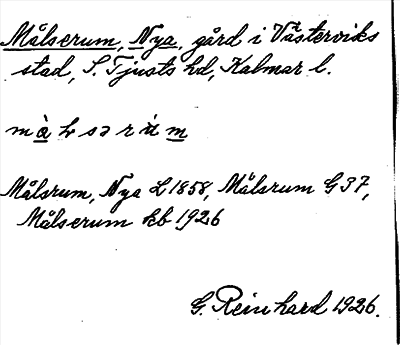 Målserum, Nya, gård i Västerviks
stad, S. Tjusts hd, Kalmar l.
Målsrum, Nya L 1858, Målsrum G 37,
Målserum kb 1926
G. Reinhard 1926.